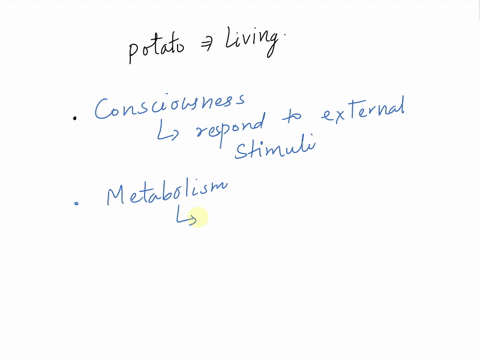 potato ⇒ Living.
• Consciousness
↳ respond to external
stimuli
• Metabolism
↳